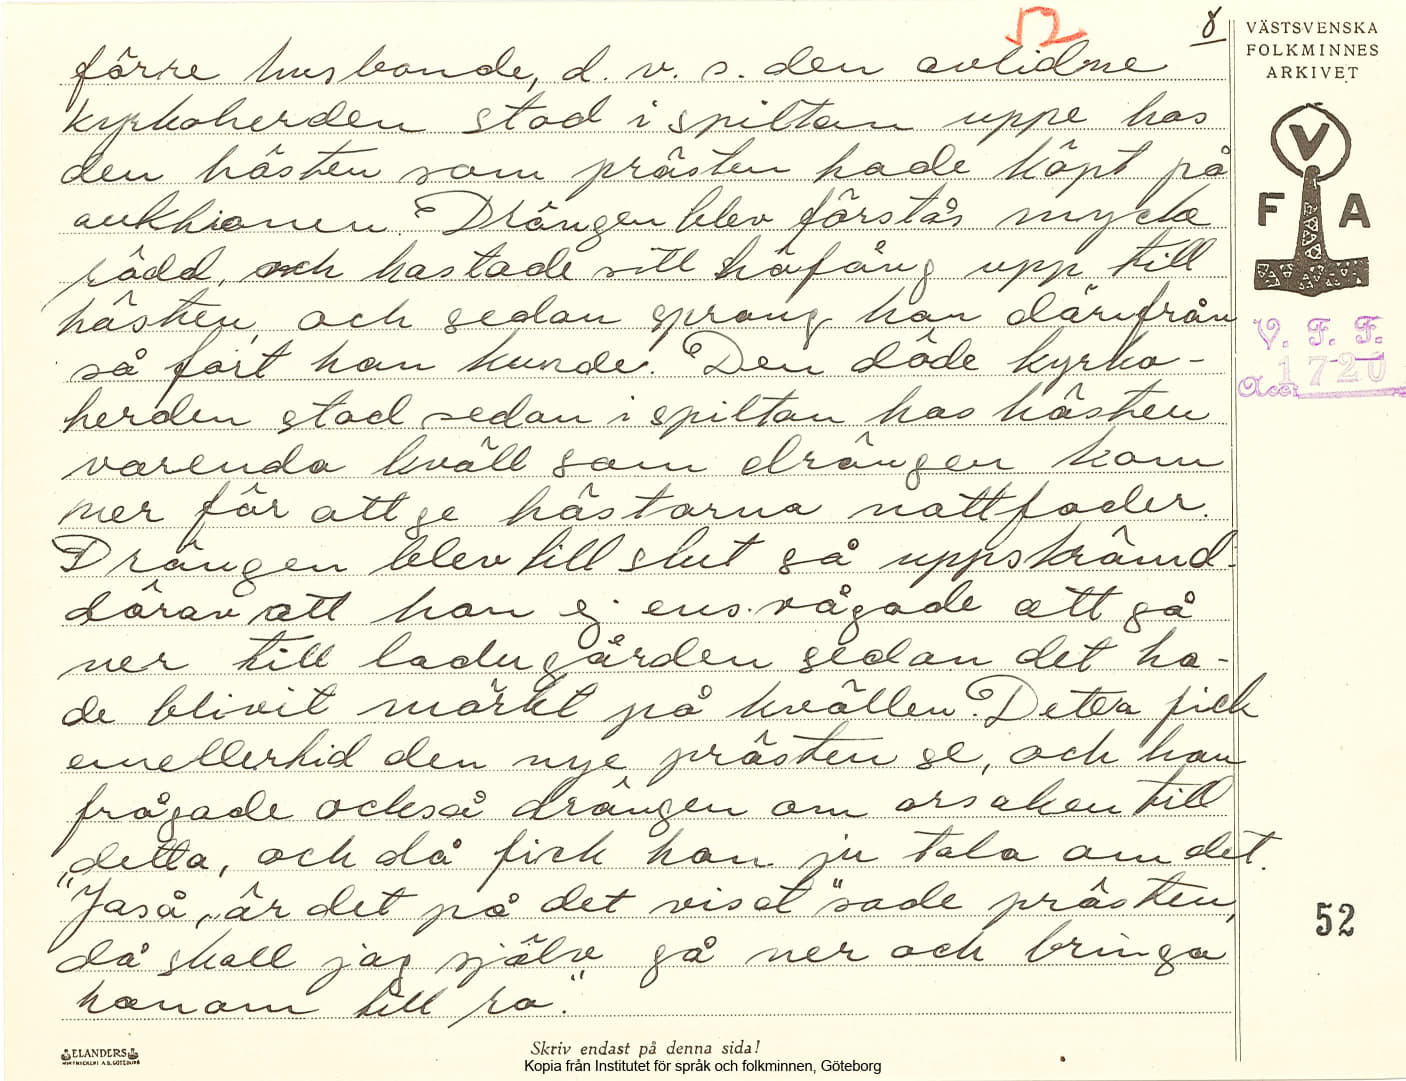 52
8
VÄSTSVENSKA
FOLKMINNES
ARKIVET
V
F A
V. F. F.
Acc. 1720
förre husbonde, d. v. s. den avlidne
kyrkoherden stod i spiltan uppe hos
den hästen som prästen hade köpt på
auktionen. Drängen blev förstås mycke
rädd, och kastade sitt höfång upp till
hästen, och sedan sprang han därifrån
så fort han kunde. Den döde kyrko-
herden stod sedan i spiltan hos hästen
varenda kväll som drängen kom
mer för att ge hästarna nattfoder.
Drängen blev till slut så uppskrämd
därav att han ej ens vågade att gå
ner till ladugården sedan det ha-
de blivit mörkt på kvällen. Detta fick
emellertid den nye prästen se, och han
frågade också drängen om orsaken till
detta, och då fick han ju tala om det.
"Jaså, är det på det viset" sade prästen,
då skall jag själv gå ner och bringa
honom till ro."
52
ELANDERS
BOKTRYCKERI A.B. GÖTEBORG
Skriv endast på denna sida!
Kopia från Institutet för språk och folkminnen, Göteborg